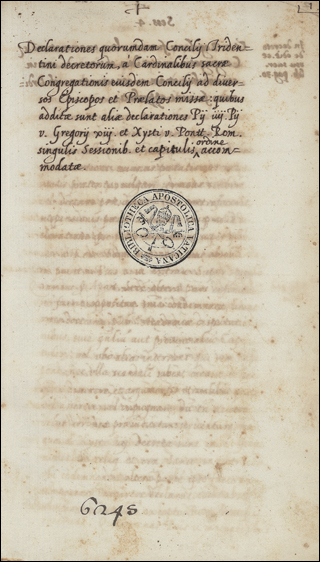 1
Declarationes quorumdam Concilij Triden-
tine decretorum, a Cardinalibus sacræ
Congregationis eiusdem Concilij ad diuer-
sos Episcopos et Prelatos missæ: quibus
additæ sunt aliæ declarationes Pij iiij Pij
v. Gregorij xiij. et Xysti v. Pontt. Rom.
singulis Sessionib. et capitulis ordine accom-
modatæ.
BIBLIOTHECA APOSTOLICA VATICANA
6245